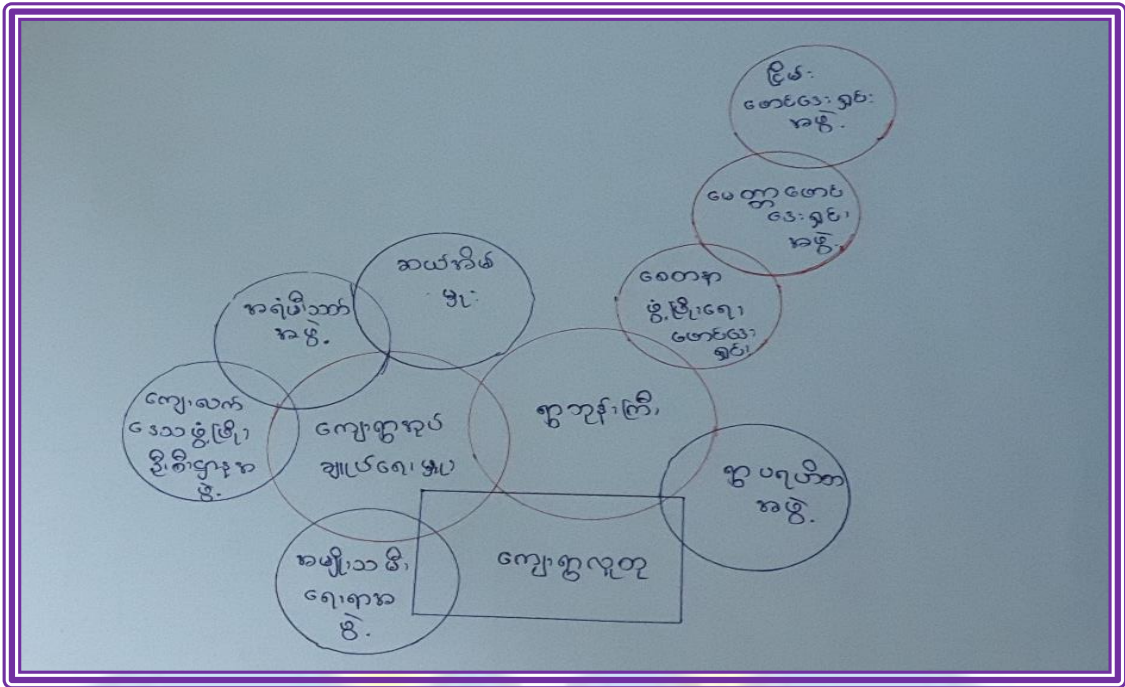 ငြိမ်း
ဖောင်ဒေးရှင်း
အဖွဲ့.
မေတ္တာဖောင်
ဒေးရှင်း
အဖွဲ့.
စေတနာ
ဖွံ့ဖြိုးရေး
ဖောင်ဒေး
ရှင်း
ဆယ်အိမ်
မှူး
အရံမီးသတ်
အဖွဲ့.
ကျေးလက်
ဒေသဖွံ့ဖြိုး
ဦးစီးဌာနအ
ဖွဲ့.
ကျေးရွာအုပ်
ချုပ်ရေးမှူး
ရွာဘုန်းကြီး
ရွာပရဟိတ
အဖွဲ့.
ကျေးရွာလူထု
အမျိုးသမီး
ရေးရာအ
ဖွဲ့.